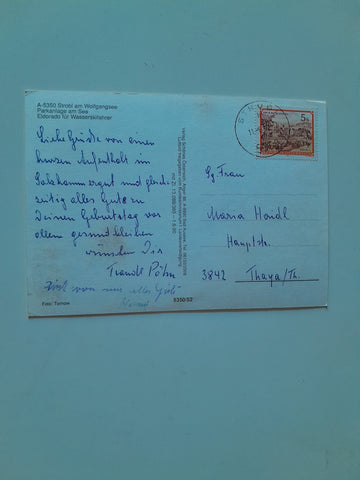 A-5350 Strobl am Wolfgangsee
Parkanlage am See
Eldorado für Wasserskifahrer
Liebe Grüße von einem
kurzen Aufenthalt im
Salzkammergut und gleich-
zeitig alles Gute zu
Deinem Geburtstag vor
allem gesund bleiben
wünschen Dir
Traude Pöhn
alles Gute
Foto: Tarnow
5350/52
5
STROBL
Sg. Frau
Maria Hondl
Hauptstr.
3842 Thaya/Th.